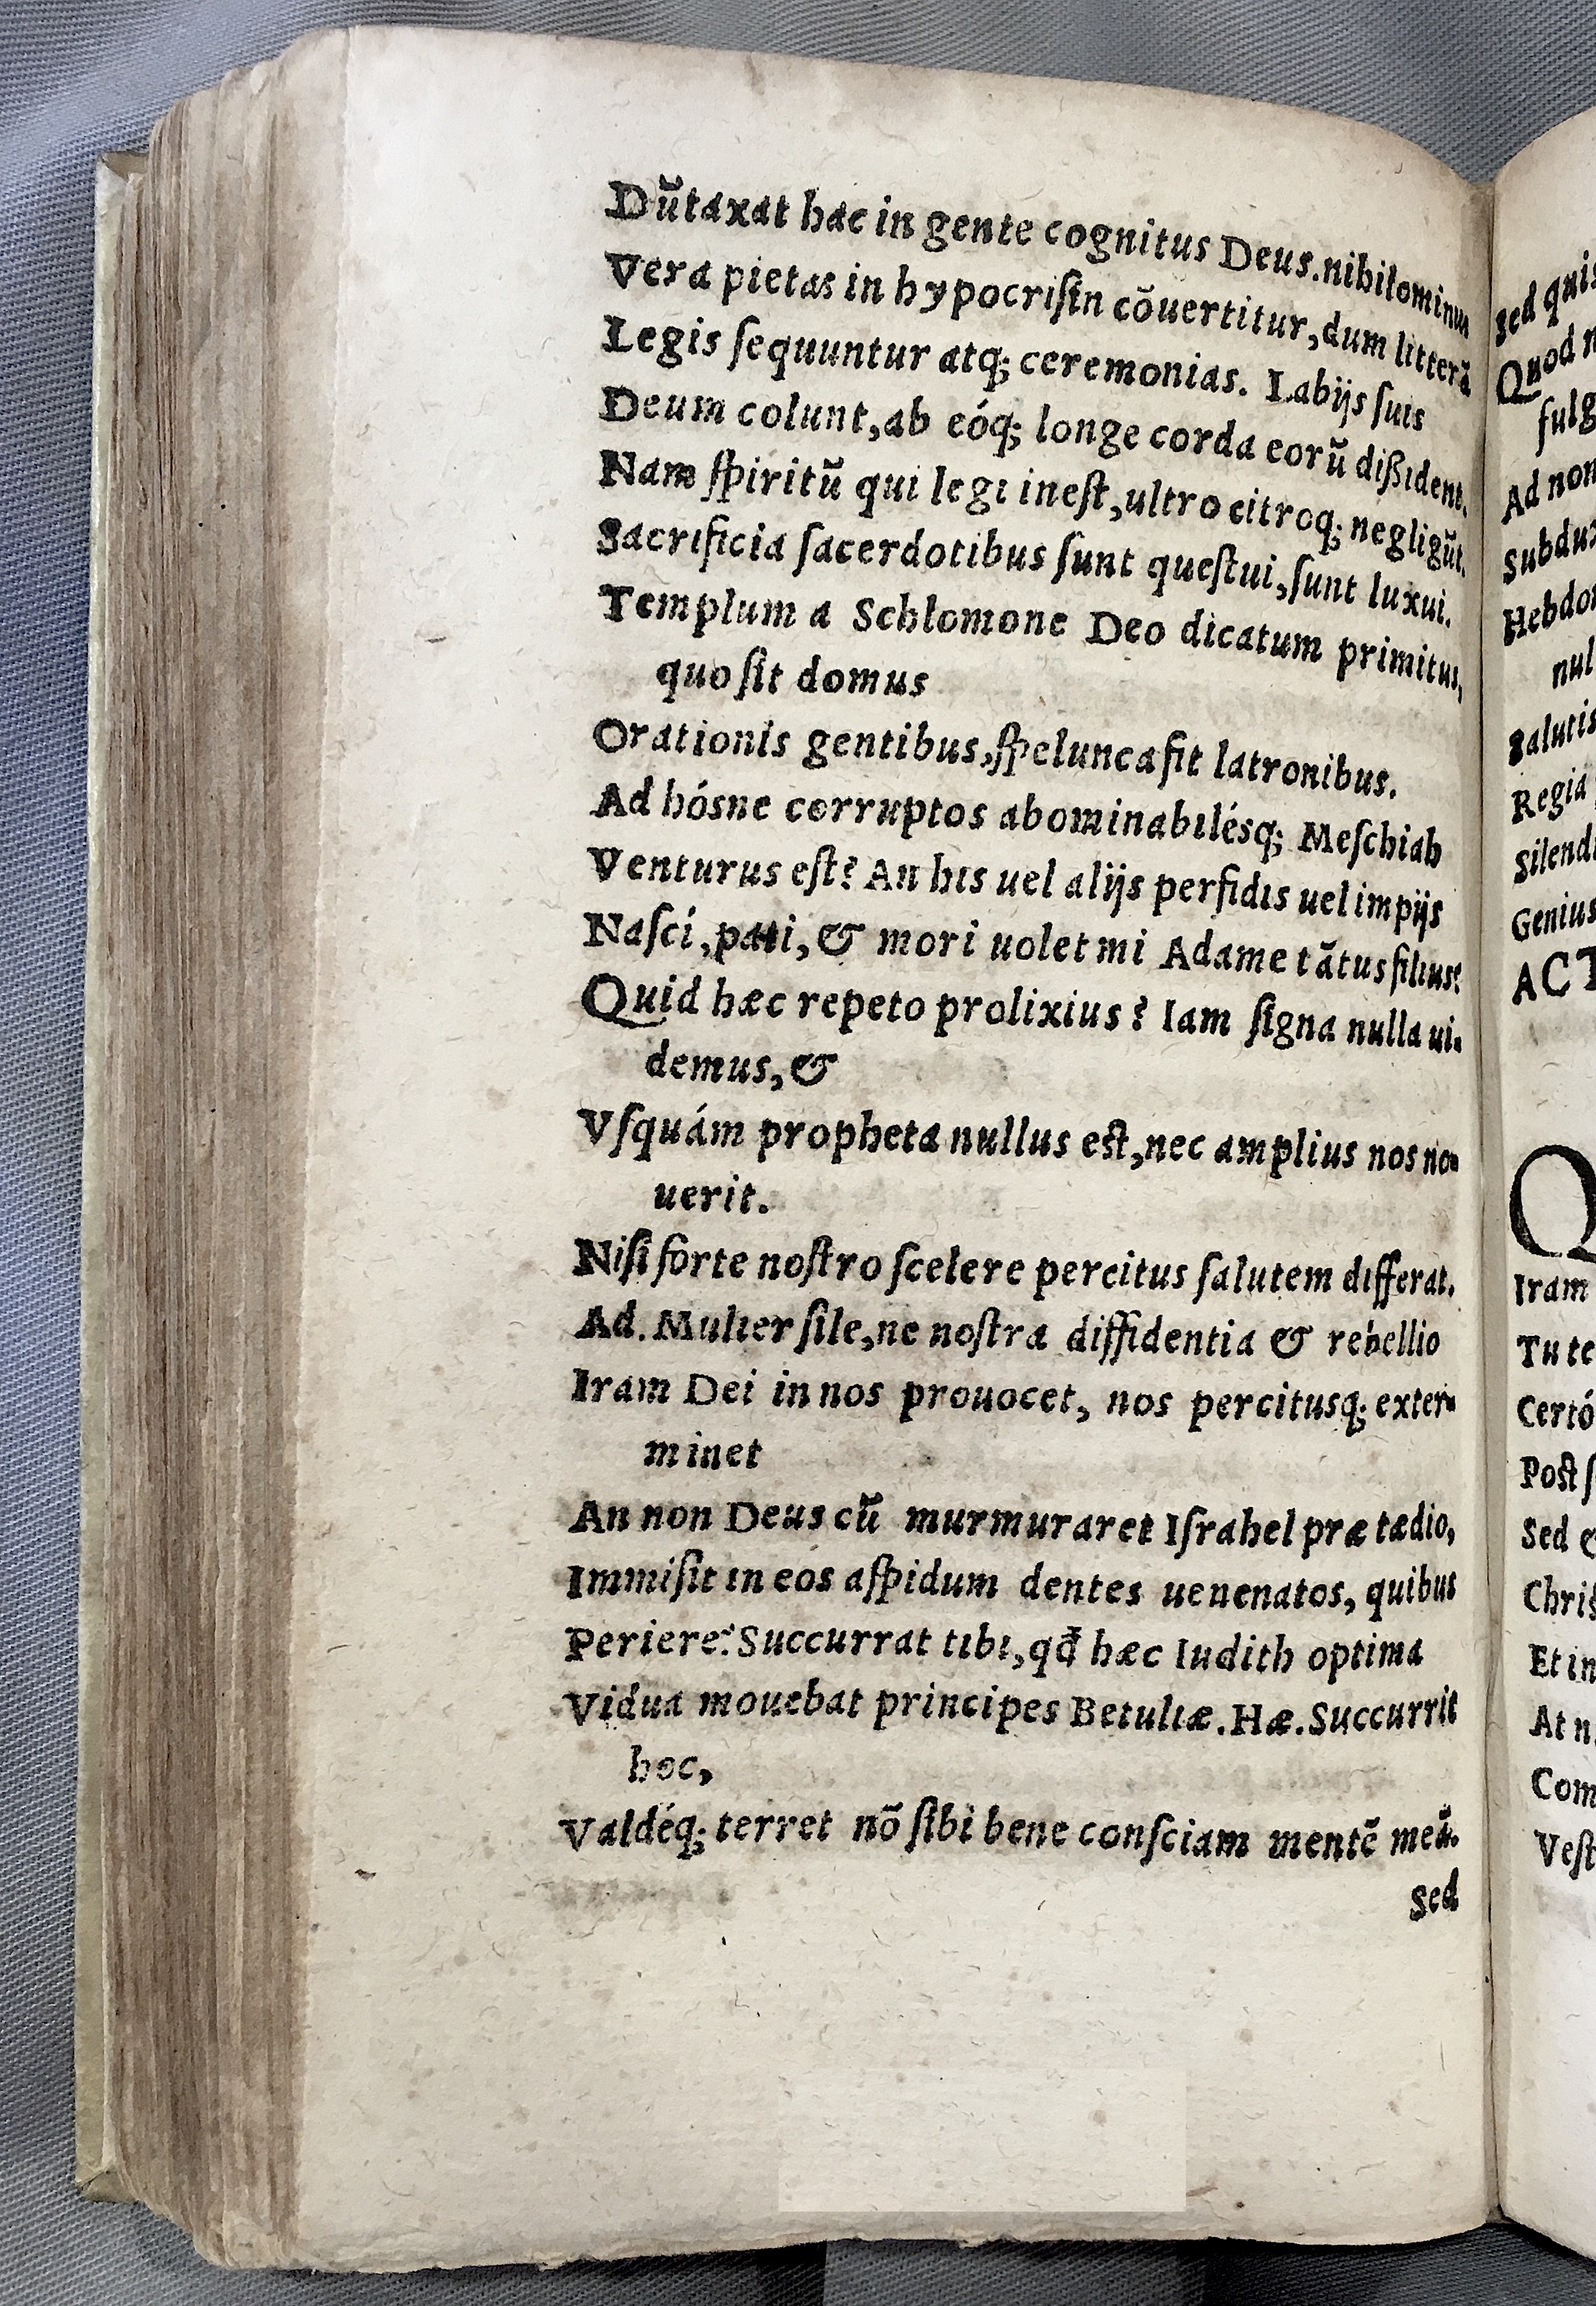 Dũtaxat hac in gente cognitus Deus.nihilominus
Vera pietas in hypocrisin cōuertitur,dum litterā
Legis sequuntur atq; ceremonias. Labijs suis
Deum colunt,ab eóq; longe corda eorũ dißident.
Nam spiritũ qui legi inest,ultro citroq; negligũt.
Sacrificia sacerdotibus sunt questui,sunt luxui.
Templum a Schlomone Deo dicatum primitus,
quo sit domus
Orationis gentibus,spelunca fit latronibus.
Ad hósne corruptos abominabilésq; Meschiah
Venturus est? An his uel alijs perfidis uel impijs
Nasci,pati,& mori uolet mi Adame tātus filius?
Quid hæc repeto prolixius? Iam signa nulla ui-
demus,&
Vsquám propheta nullus est,nec amplius nos no-
uerit.
Nisi forte nostro scelere percitus salutem differat.
Ad. Mulier sile,ne nostra diffidentia & rebellio
Iram Dei in nos prouocet, nos percitusq; exter-
minet
An non Deus cũ murmuraret Israhel præ tædio,
Immisit in eos aspidum dentes uenenatos, quibus
Periere? Succurrat tibi,qđ hæc Iudith optima
Vidua mouebat principes Betuliæ.Hæ.Succurrit
hoc,
Valdéq; terret nō sibi bene consciam mentē meā.
Sed
sed quis
Quod
fulg
Ad non
Subdux
Hebdo
nul
Salutis
Regia
Silend
Genius
ACT
Q
Iram
Tu te
Certó
Post
Sed
Chris
Et in
At n
Com
Vest